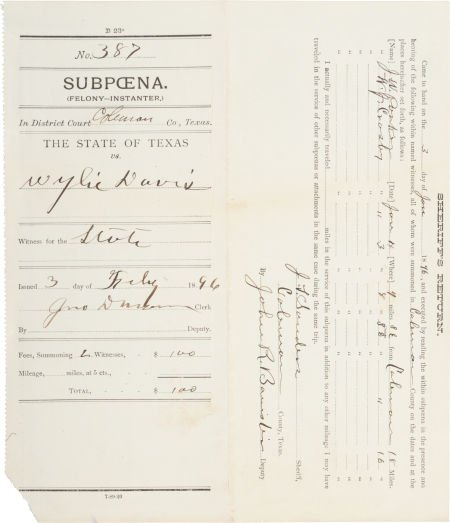 D 23ᵃ
No. 387
SUBPŒNA.
(FELONY—INSTANTER.)
In District Court Coleman Co., Texas.
THE STATE OF TEXAS
vs.
Wylie Davis
Witness for the State
Issued 3 day of Feby 1896
Jno Clerk
By Deputy.
Fees, Summoning 2 Witnesses, - $ 1 00
Mileage, miles, at 5 cts., -
TOTAL, - - - $ 1 00
7-89-20
SHERIFF'S RETURN.
Came to hand on the 3 day of 1896, and executed by reading the within subpœna in the presence and
hearing of the following within named witnesses, all of whom were summoned in Coleman County on the dates and at the
places hereinafter set forth, as follows:
[Name] J. W. [Date] [Where] 9 miles S E from Coleman 18 Miles.
J W Crosby " " 3 " 8 " S E " " 16 "
I actually and necessarily traveled miles in the service of this subpœna in addition to any other mileage I may have
traveled in the service of other subpœnas or attachments in the same case during the same trip.
J. L. Sanders Sheriff,
Coleman County, Texas.
By John R Banister Deputy